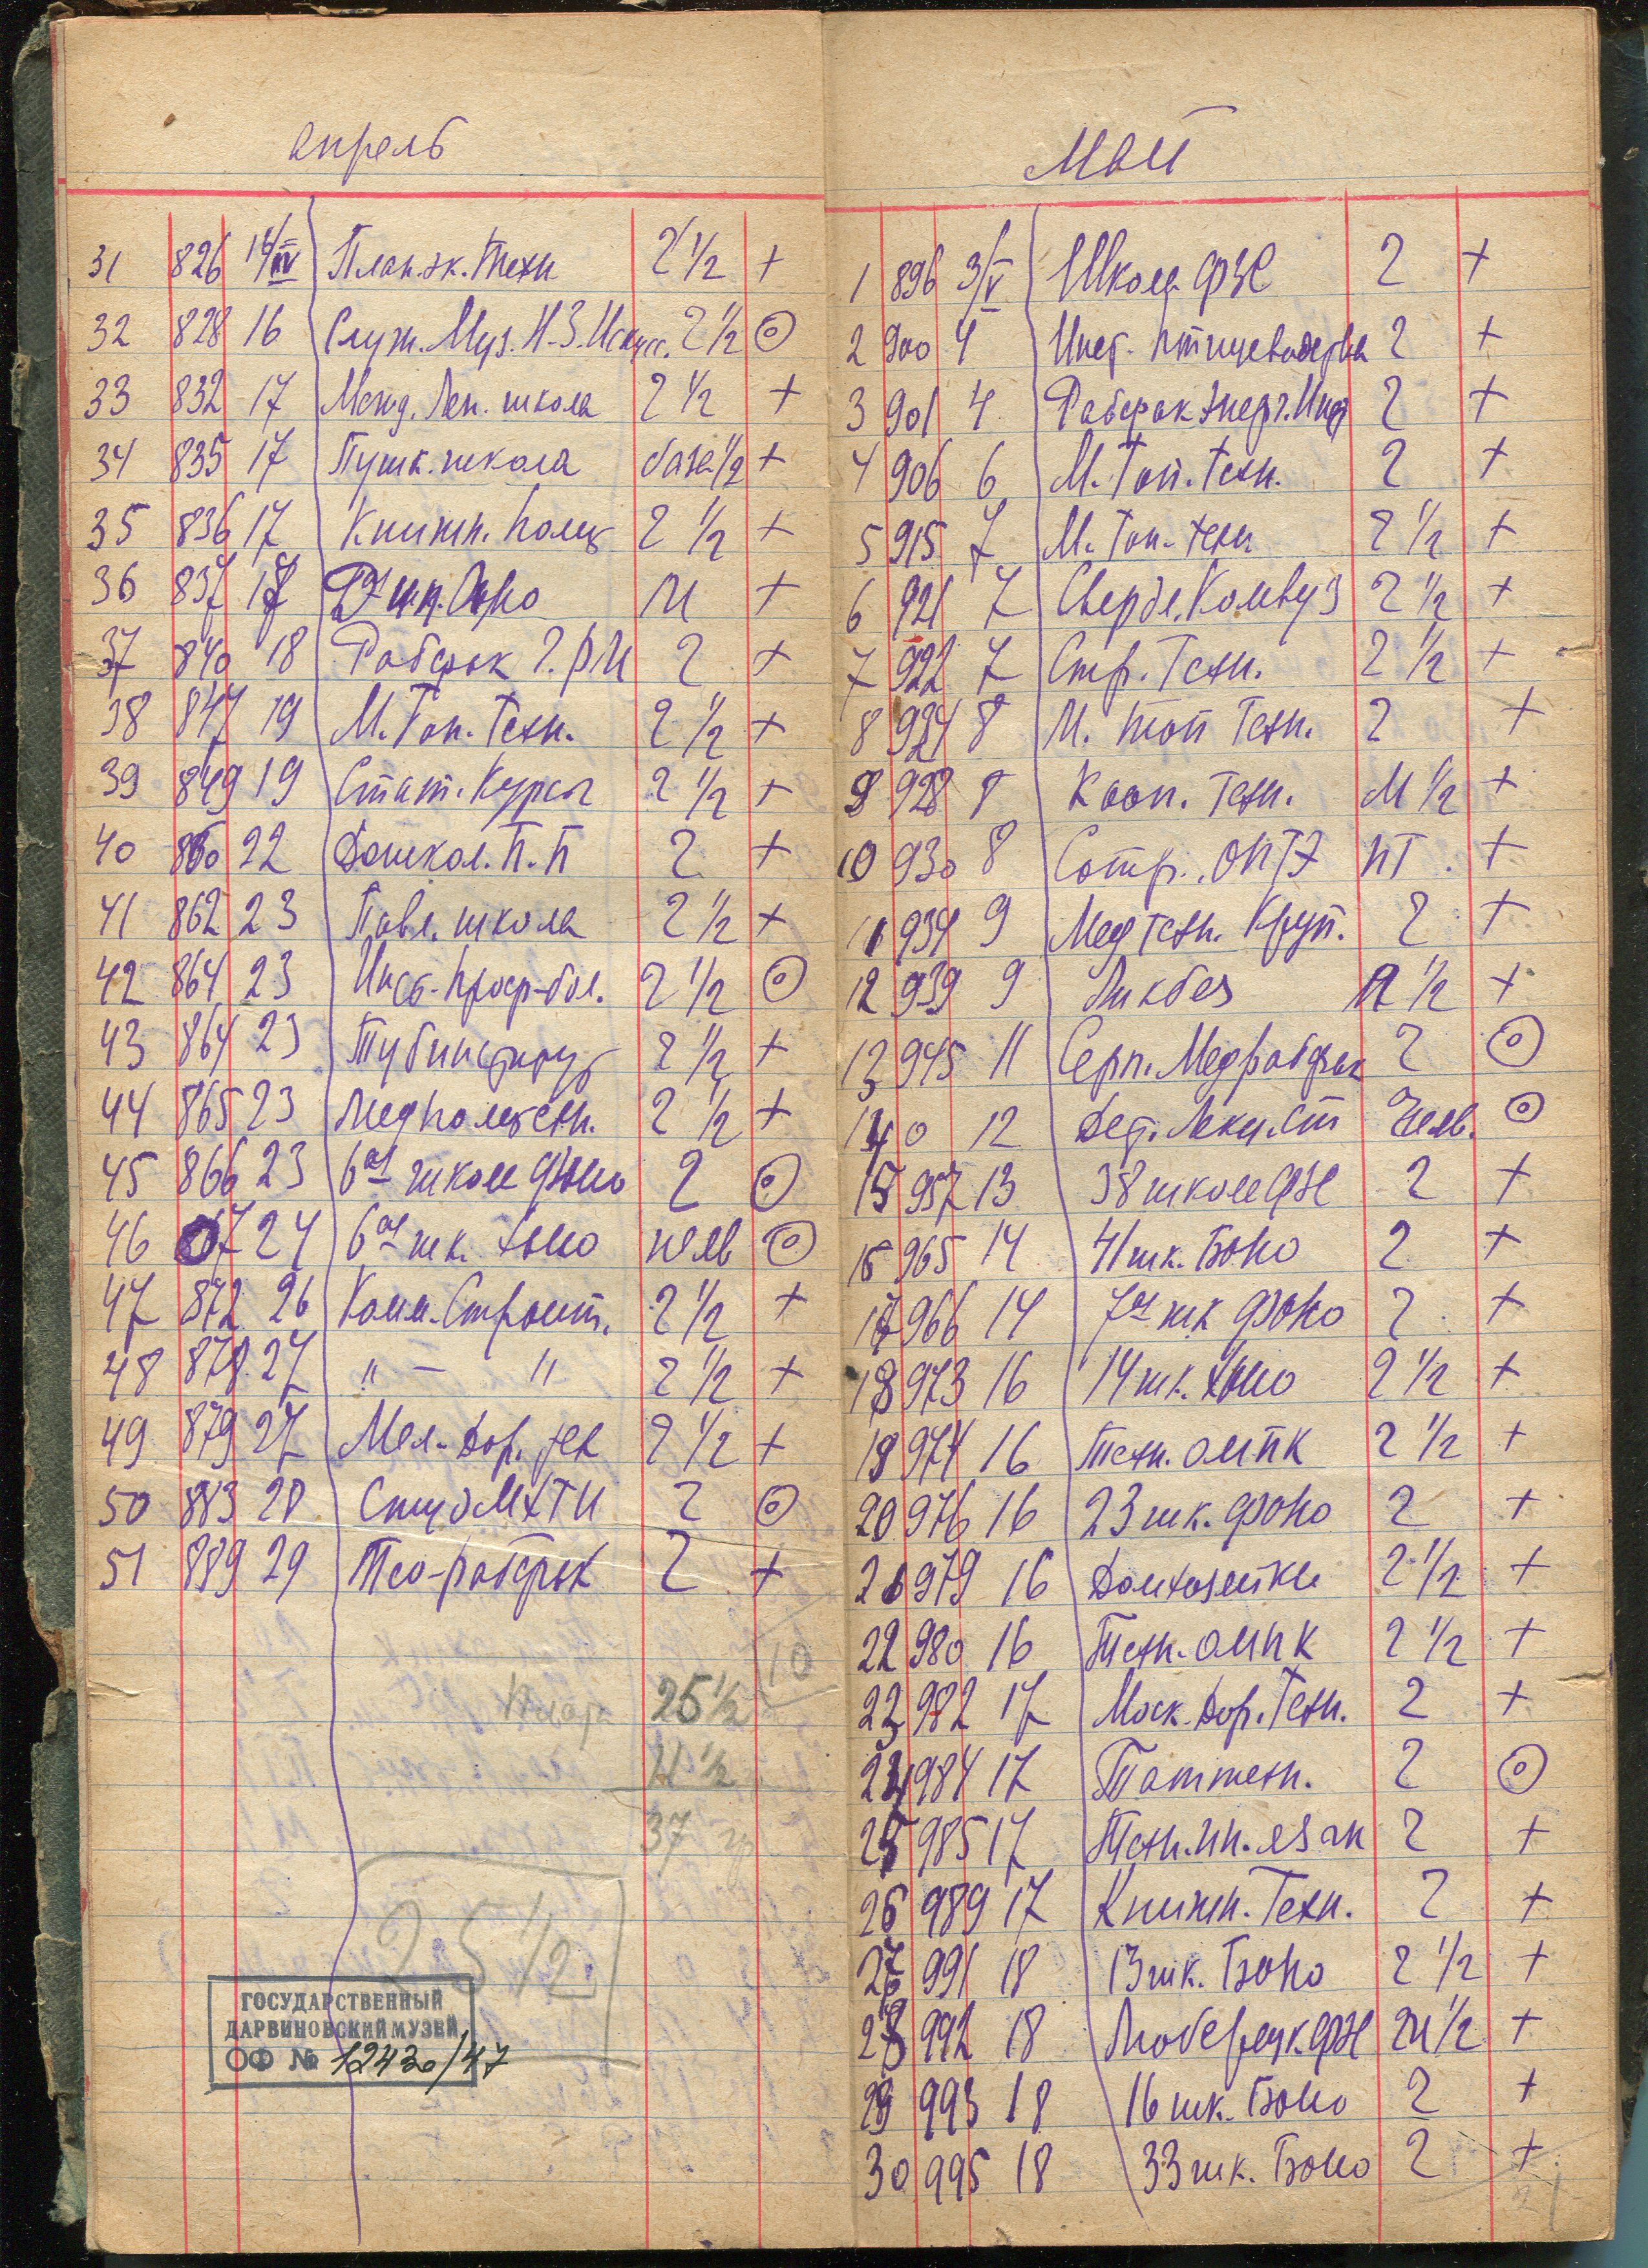 апрель
31 826 16/IV План.эк.Техн 2 1/2 +
32 828 16 Служ.Муз.Н.З.Искусс. 2 1/2 ⊙
33 832 17 Межд.Лен.школа 2 1/2 +
34 835 17 Пушк.школа 1/2 +
35 836 17 Книжн. 2 1/2 +
36 837 17 +
37 840 18 Рабфак 2 +
38 847 19 М.Топ.Техн. 2 1/2 +
39 849 19 Стат.Курсы 2 1/2 +
40 860 22 Дошкол.П.П 2 +
41 862 23 Павл.школа 2 1/2 +
42 864 23 2 1/2 ⊙
43 864 23 Тубинститут 2 1/2 +
44 865 23 2 1/2 +
45 866 23 6ая школа 2 ⊙
46 24 6ая шк. ⊙
47 872 26 Комм.Строит. 2 1/2 +
48 878 27 " — " 2 1/2 +
49 879 27 Мел-Дор. 2 1/2 +
50 883 28 МХТИ 2 ⊙
51 889 29 Тео-рабфак 2 +
25 1/2
11 1/2
37
25 1/2
ГОСУДАРСТВЕННЫЙ
ДАРВИНОВСКИЙ МУЗЕЙ
ОФ № 12430/47
май
1 896 3/V Школа ФЗС 2 +
2 900 4 Инст. птицеводства 2 +
3 901 4 Рабфак Энерг.Инст 2 +
4 906 6 М.Топ.Техн. 2 +
5 915 7 М.Топ.техн 2 1/2 +
6 921 7 Сверд.Комвуз 2 1/2 +
7 922 7 Стр.Техн. 2 1/2 +
8 924 8 М. Топ Техн. 2 +
9 928 8 Кооп. Техн. М 1/2 +
10 930 8 Сотр. ОПТЭ ПТ. +
11 934 9 Медтехн. Круп. 2 +
12 939 9 Ликбез 1/2 +
13 945 11 Серп.Медрабфак 2 ⊙
14 0 12 ⊙
15 957 13 38 школа 2 +
16 965 14 41 шк. Боно 2 +
17 966 14 7ая шк Фоно 2 +
18 973 16 14 шк. 2 1/2 +
19 974 16 Техн. ОМПК 2 1/2 +
20 976 16 23 шк. Фоно 2 +
21 979 16 Домхозяйки 2 1/2 +
22 980 16 Техн. ОМПК 2 1/2 +
23 982 17 Моск.Дор.Техн. 2 +
24 984 17 Таттехн. 2 ⊙
25 985 17 Техн.ин.язык 2 +
26 989 17 Книжн.Техн. 2 +
27 991 18 13 шк. Боно 2 1/2 +
28 992 18 1/2 +
29 993 18 16 шк. Боно 2 +
30 995 18 33 шк. Боно 2 +